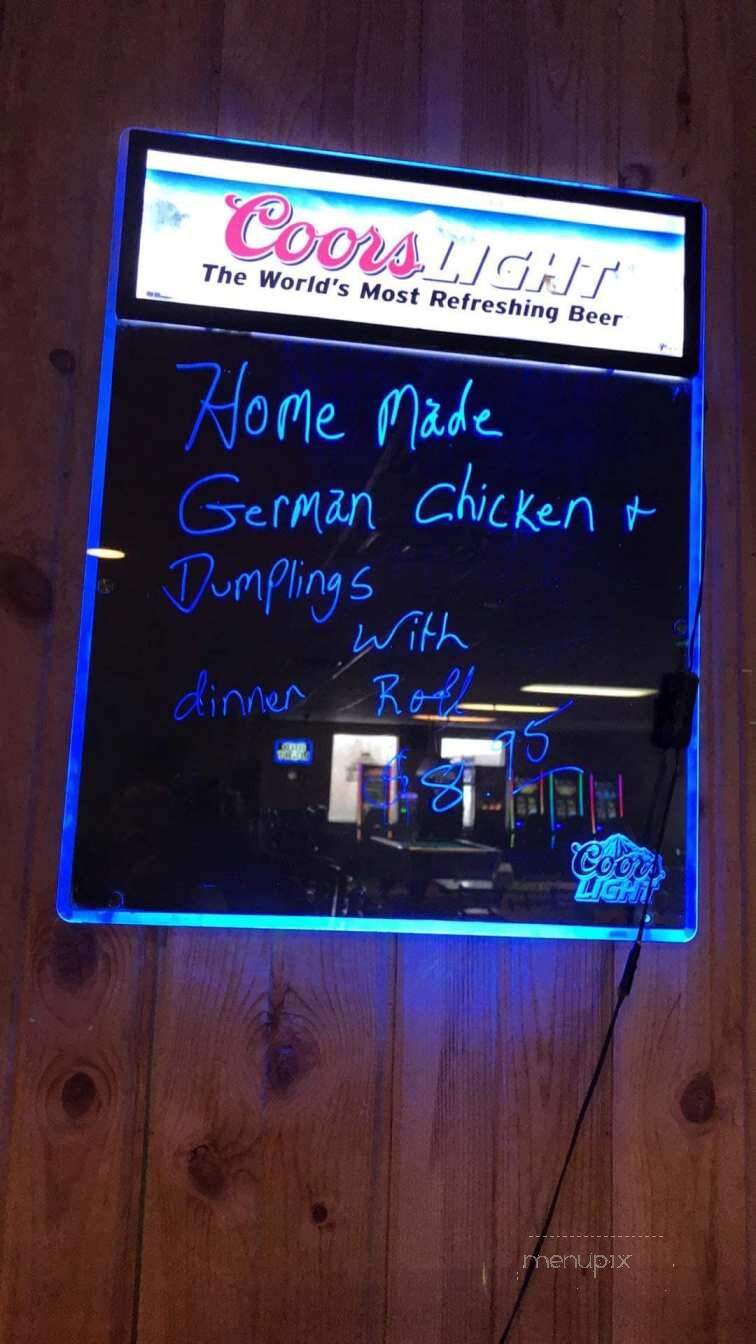 Coors LIGHT
The World's Most Refreshing Beer
Home Made
German Chicken &
Dumplings
with
dinner Roll
$8.95
Coors
LIGHT
menupix